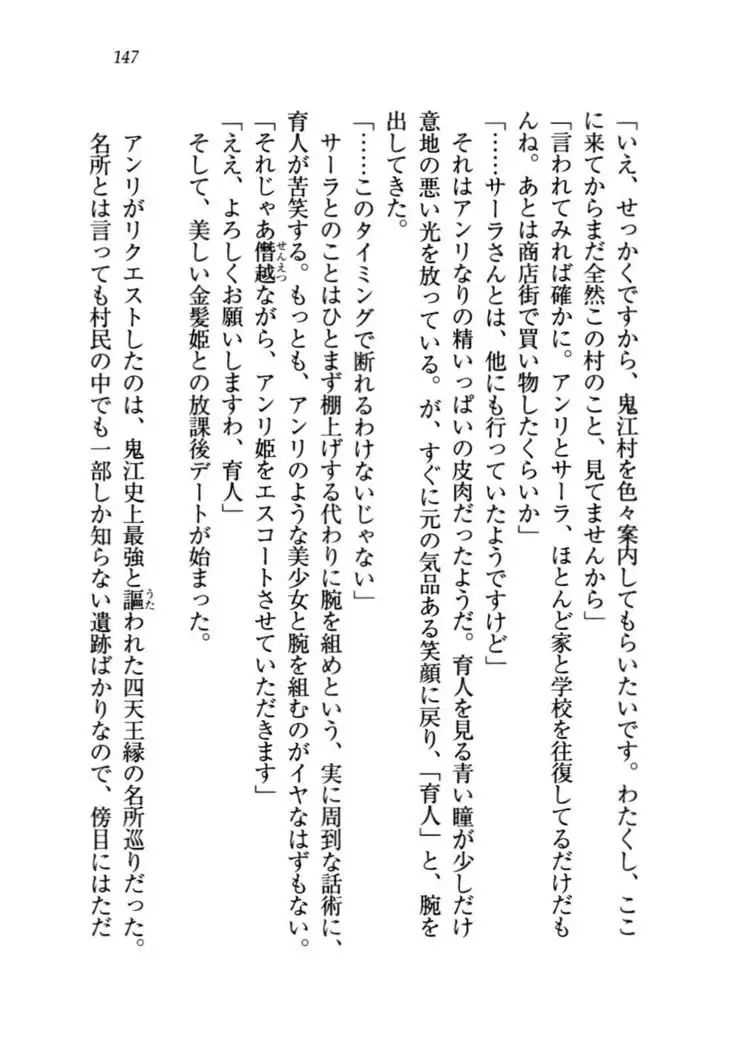 147
「いえ、せっかくですから、鬼江村を色々案内してもらいたいです。わたくし、ここ
に来てからまだ全然この村のこと、見てませんから」
「言われてみれば確かに。アンリとサーラ、ほとんど家と学校を往復してるだけだも
んね。あとは商店街で買い物したくらいか」
「……サーラさんとは、他にも行っていたようですけど」
それはアンリなりの精いっぱいの皮肉だったようだ。育人を見る青い瞳が少しだけ
意地の悪い光を放っている。が、すぐに元の気品ある笑顔に戻り、「育人」と、腕を
出してきた。
「……このタイミングで断れるわけないじゃない」
サーラとのことはひとまず棚上げする代わりに腕を組めという、実に周到な話術に、
育人が苦笑する。もっとも、アンリのような美少女と腕を組むのがイヤなはずもない。
「それじゃあ僭越ながら、アンリ姫をエスコートさせていただきます」
せんえつ
「ええ、よろしくお願いしますわ、育人」
そして、美しい金髪姫との放課後デートが始まった。
アンリがリクエストしたのは、鬼江史上最強と謳われた四天王縁の名所巡りだった。
うた
名所とは言っても村民の中でも一部しか知らない遺跡ばかりなので、傍目にはただ